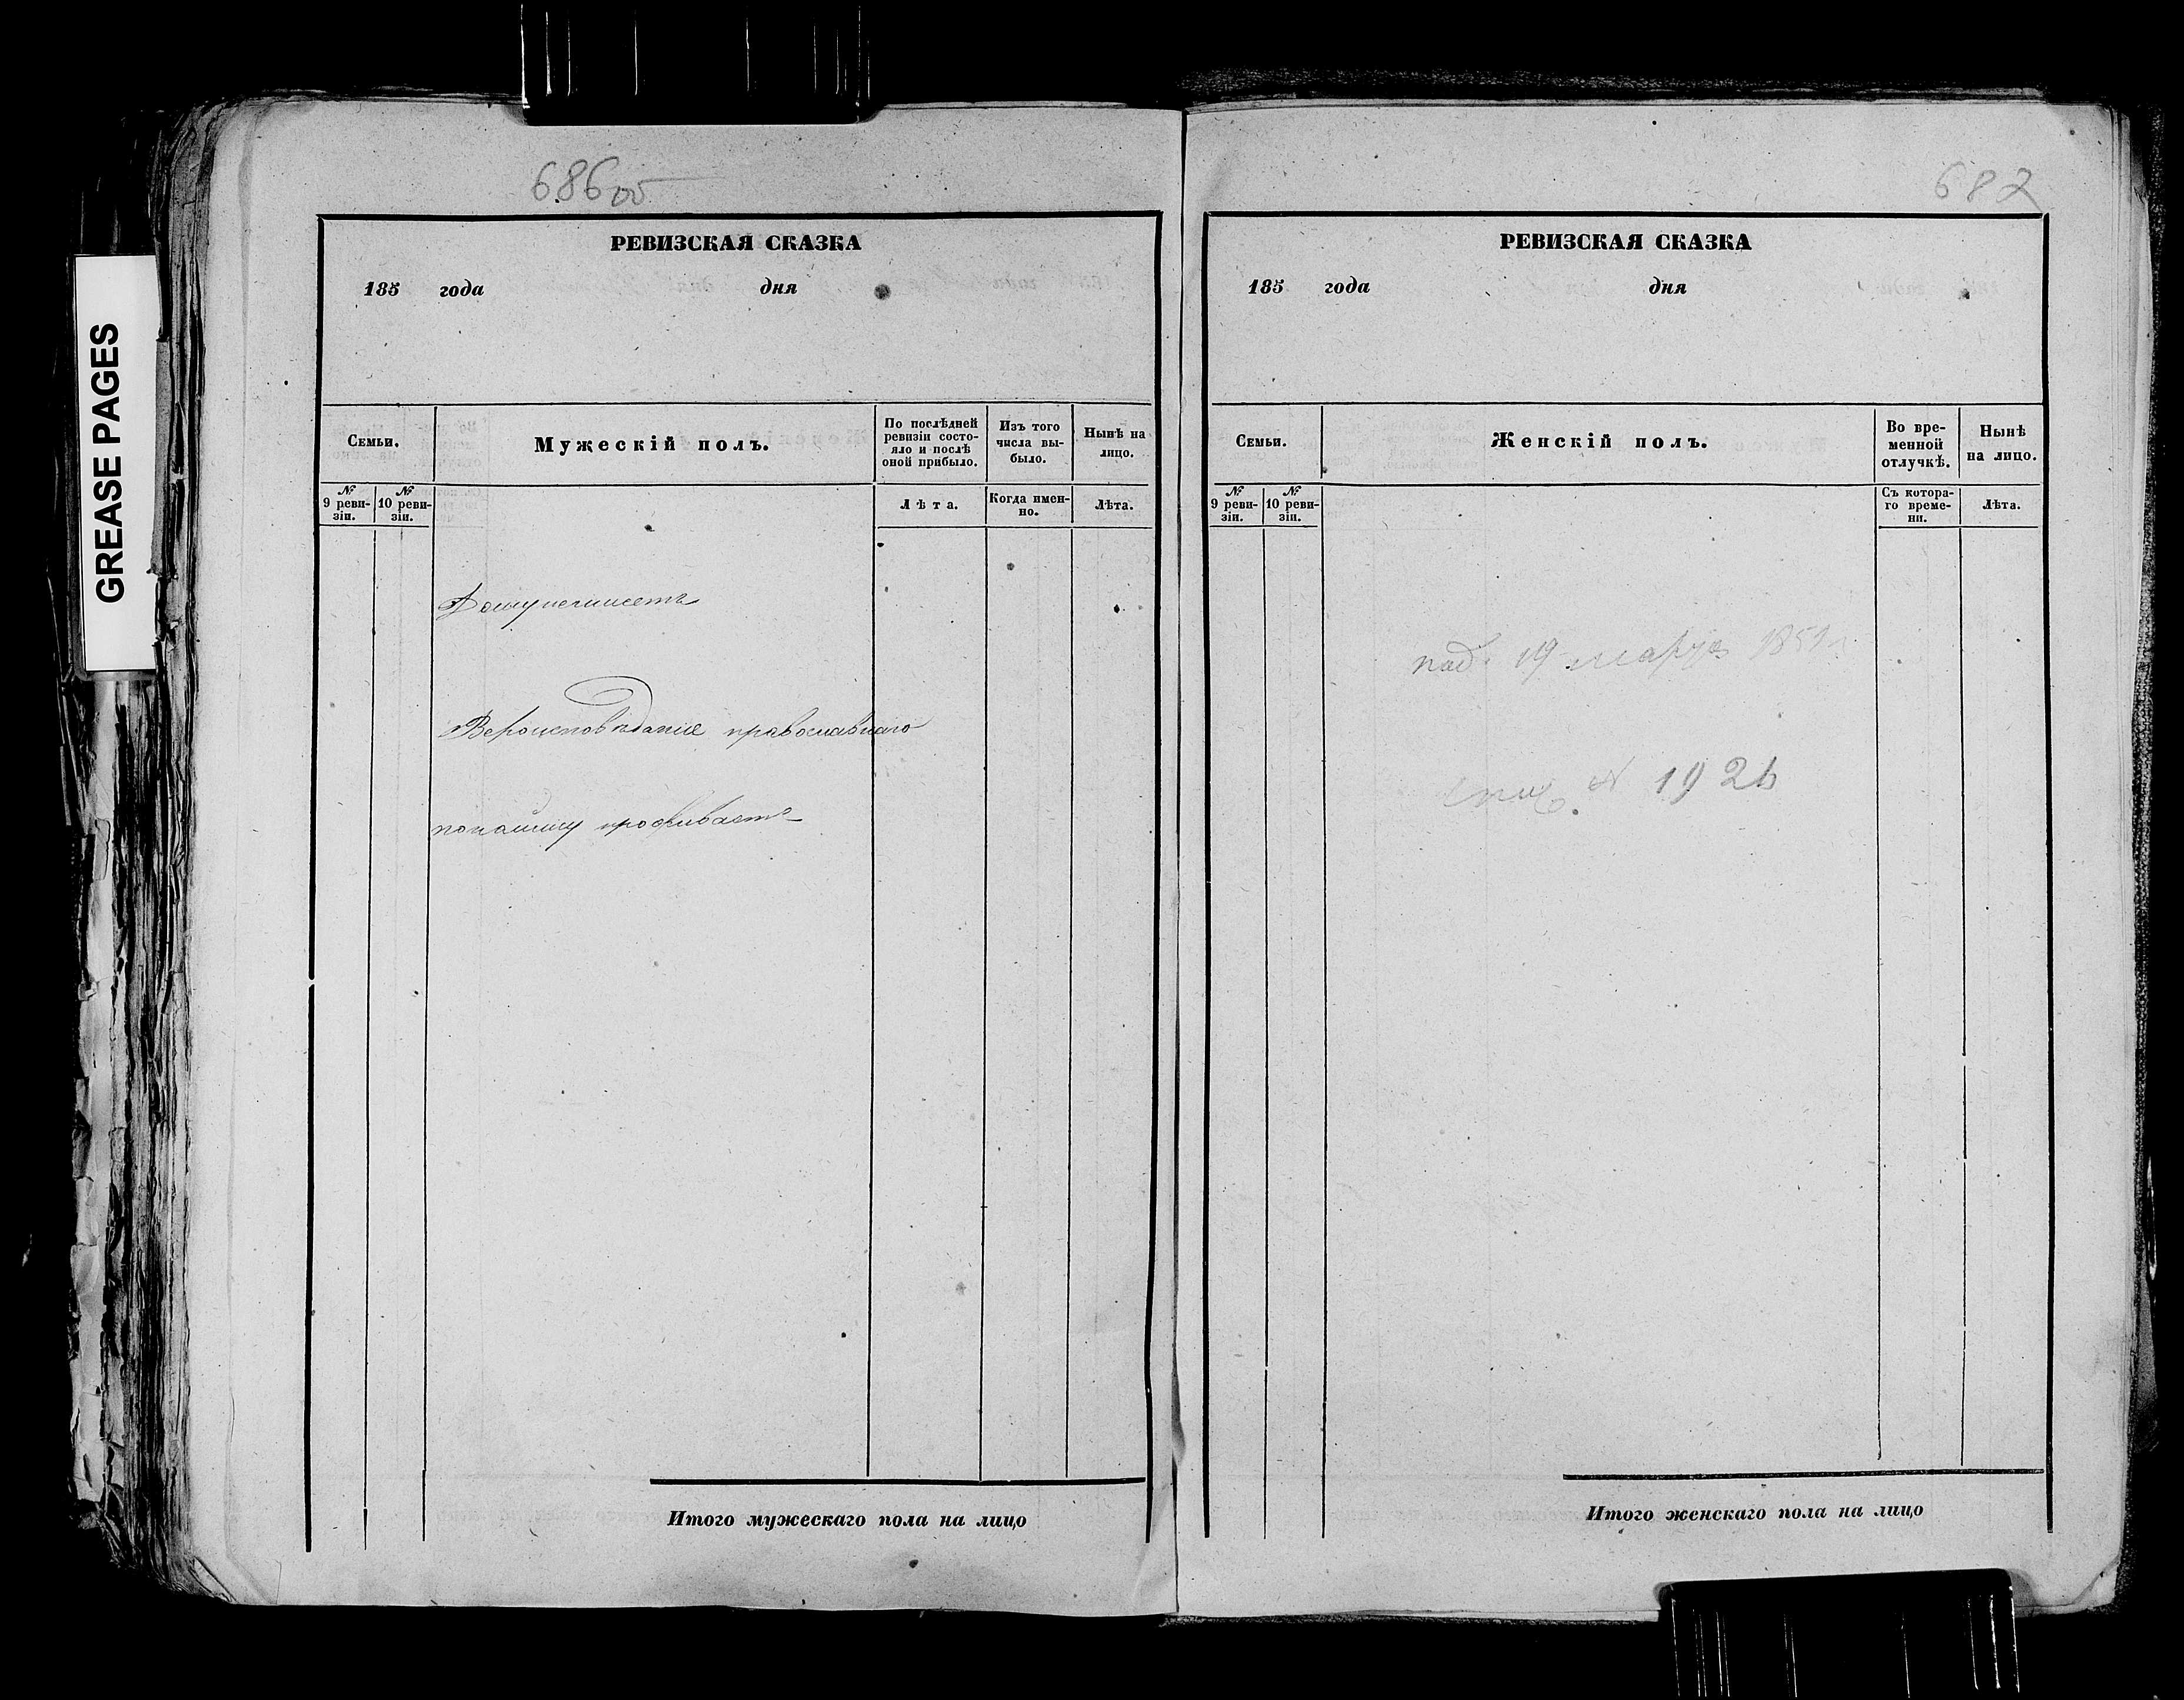 GREASE PAGES
686 об
РЕВИЗСКАЯ СКАЗКА
185 года дня
Семьи.
Мужескій полъ.
По послѣдней
ревизіи состо-
яло и послѣ
оной прибыло.
Изъ того
числа вы-
было.
Нынѣ на
лицо.
№
9 реви-
зіи.
№
10 реви-
зіи.
Лѣта.
Когда имен-
но.
Лѣта.
Вероисповѣдание православнаго
проживаетъ
Итого мужескаго пола на лицо
687
РЕВИЗСКАЯ СКАЗКА
185 года дня
Семьи.
Женскій полъ.
Во вре-
менной
отлучкѣ.
Нынѣ
на лицо.
№
9 реви-
зіи.
№
10 реви-
зіи.
Съ котора-
го време-
ни.
Лѣта.
под. 19 марта 1851
№ 1926
Итого женскаго пола на лицо